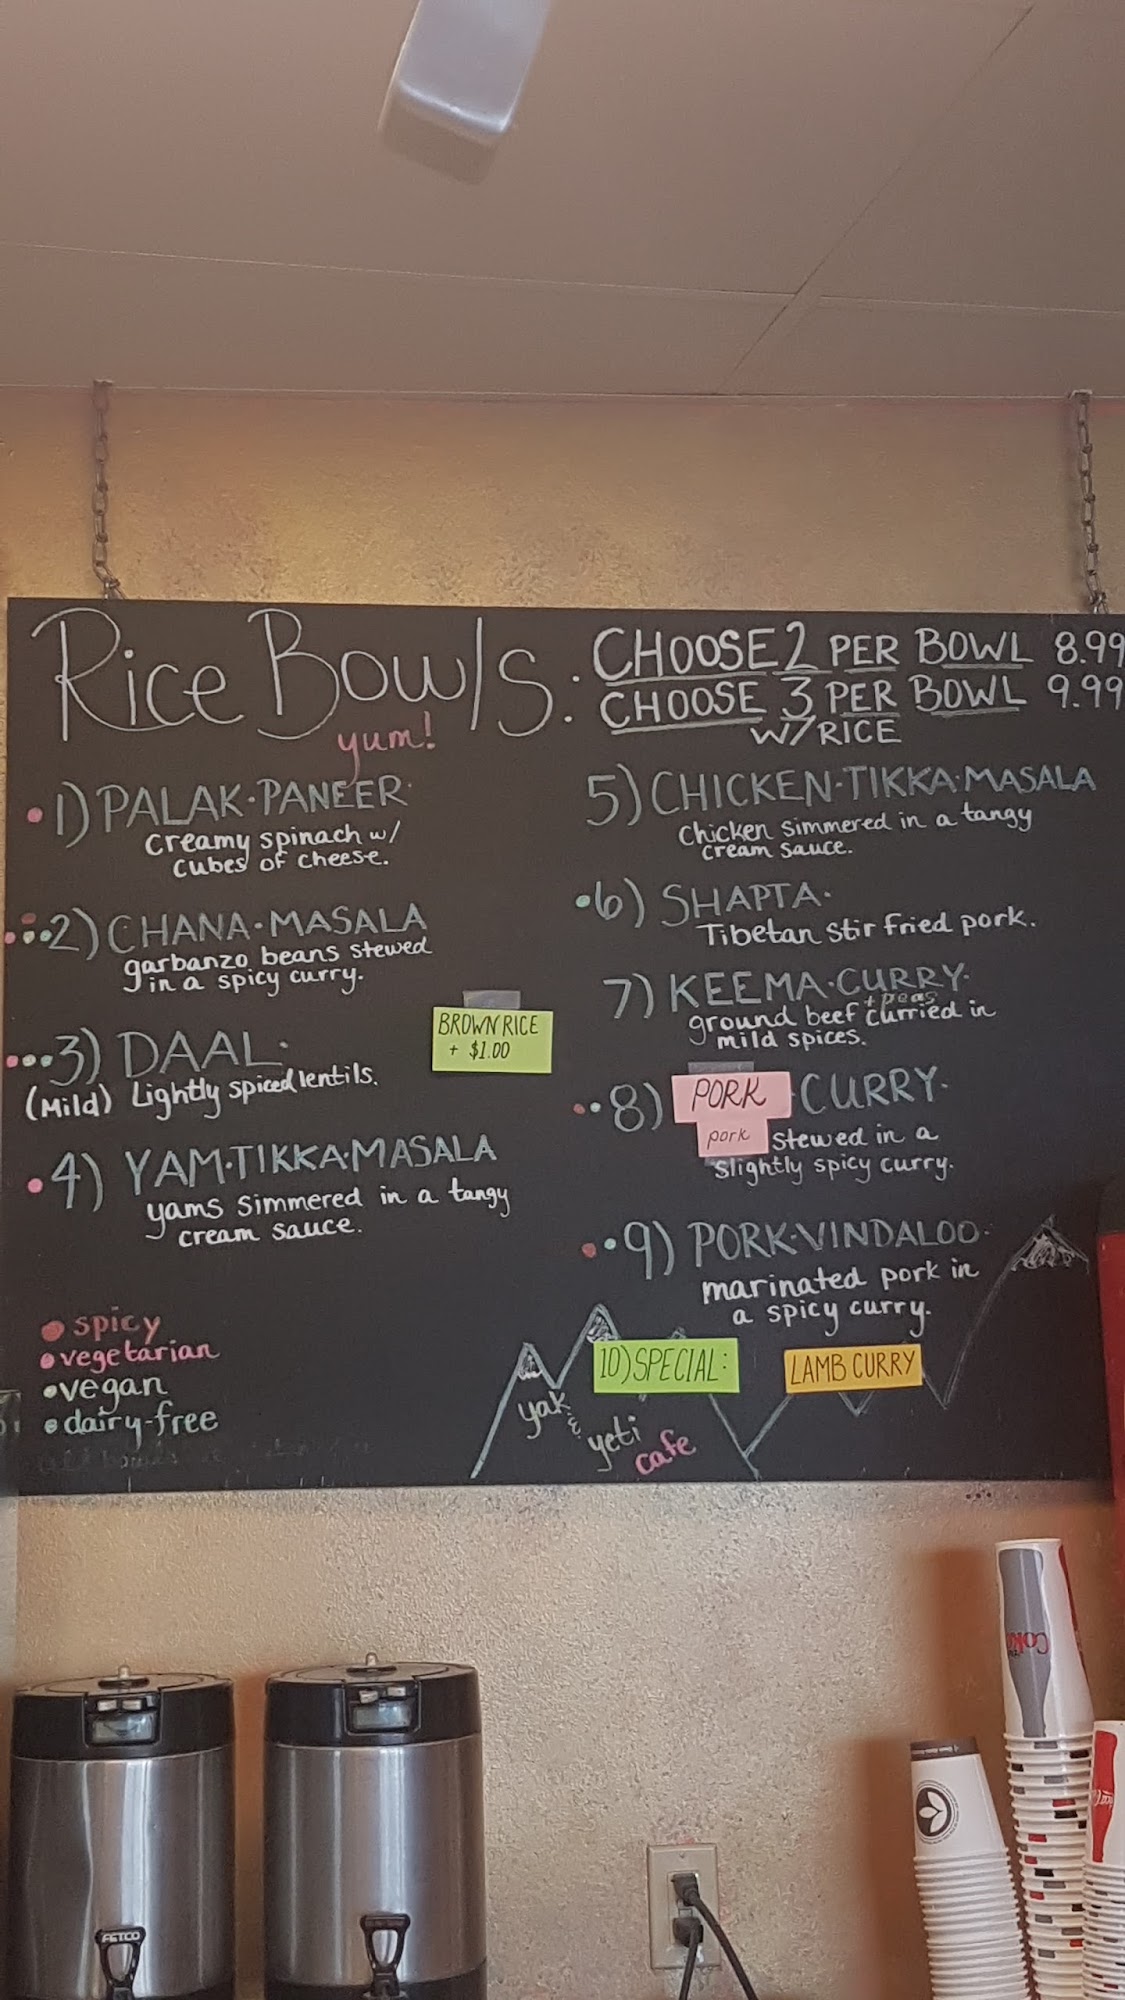 Rice Bowls:
yum!
CHOOSE 2 PER BOWL 8.99
CHOOSE 3 PER BOWL 9.99
W/ RICE
1) PALAK·PANEER·
creamy spinach w/
cubes of cheese.
2) CHANA·MASALA
garbanzo beans stewed
in a spicy curry.
BROWN RICE
+ $1.00
3) DAAL·
(Mild) Lightly spiced lentils.
4) YAM·TIKKA·MASALA
yams simmered in a tangy
cream sauce.
5) CHICKEN·TIKKA·MASALA
Chicken simmered in a tangy
cream sauce.
6) SHAPTA·
Tibetan stir fried pork.
7) KEEMA·CURRY·
+ peas
ground beef curried in
mild spices.
8) PORK CURRY·
pork stewed in a
slightly spicy curry.
9) PORK·VINDALOO·
marinated pork in
a spicy curry.
10) SPECIAL: LAMB CURRY
spicy
vegetarian
vegan
dairy-free
yak
&
yeti
cafe
FETCO
Coke